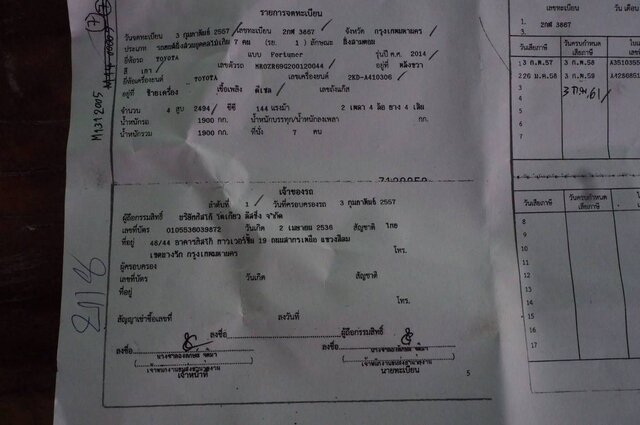 รายการจดทะเบียน
วันจดทะเบียน 3 กุมภาพันธ์ 2557 เลขทะเบียน 2กฬ 3867 จังหวัด กรุงเทพมหานคร
ประเภท รถยนต์นั่งส่วนบุคคลไม่เกิน 7 คน (รย. 1 ) ลักษณะ นั่งสามตอน
ยี่ห้อรถ TOYOTA แบบ Fortuner รุ่นปี ค.ศ. 2014
สี เทา เลขตัวรถ MR0ZR69G200120044 อยู่ที่ คลังขวา
ยี่ห้อเครื่องยนต์ TOYOTA เลขเครื่องยนต์ 2KD-A410306
อยู่ที่ ซ้ายเครื่อง เชื้อเพลิง ดีเซล เลขถังแก๊ส
จำนวน 4 สูบ 2494 ซีซี 144 แรงม้า 2 เพลา 4 ล้อ ยาง 4 เส้น
น้ำหนักรถ 1900 กก. น้ำหนักบรรทุก/น้ำหนักลงเพลา กก.
น้ำหนักรวม 1900 กก. ที่นั่ง 7 คน
เจ้าของรถ
ลำดับที่ 1 วันที่ครอบครองรถ 3 กุมภาพันธ์ 2557
ผู้ถือกรรมสิทธิ์ บริษัทลิสซิ่ง จำกัด
เลขที่บัตร 0105536039872 วันเกิด 2 เมษายน 2536 สัญชาติ ไทย
ที่อยู่ 48/44 อาคารทิสโก้ ทาวเวอร์ชั้น 19 ถนนสาทรเหนือ แขวงสีลม
เขตบางรัก กรุงเทพมหานคร โทร.
ผู้ครอบครอง
เลขที่บัตร วันเกิด สัญชาติ
ที่อยู่
โทร.
สัญญาเช่าซื้อเลขที่ ลงวันที่
ลงชื่อ ผู้ถือกรรมสิทธิ์
ลงชื่อ ลงชื่อ
เจ้าหน้าที่ นายทะเบียน
5
M1312005
เลขทะเบียน
2กฬ 3867
วันเสียภาษี วันครบกำหนด
เสียภาษี
1 3 ก.พ.57 3 ก.พ.58
2 26 ม.ค.58 3 ก.พ.59
3 3 ก.พ.61
4
5
6
7
วันเสียภาษี วันครบกำหนด
เสียภาษี
8
9
11
12
13
14
15
16
17